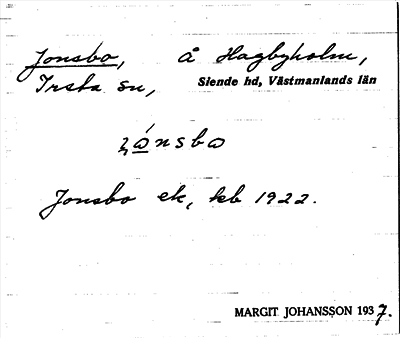 Jonsbo, å Hagbyholm,
Irsta sn, Siende hd, Västmanlands län
ʒó̲nsbω
Jonsbo ek, kb 1922.
MARGIT JOHANSSON 1937.